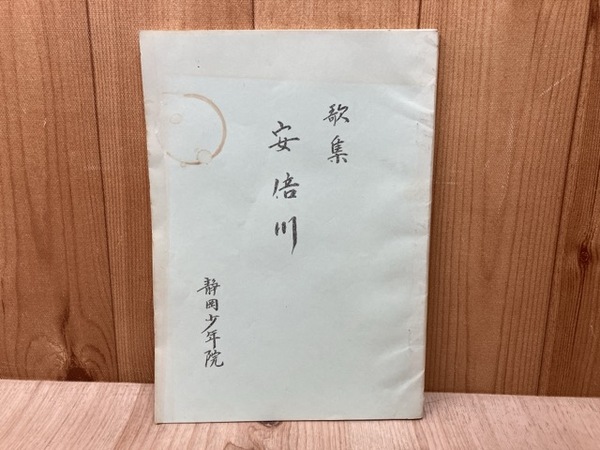 歌集
安倍川
静岡少年院